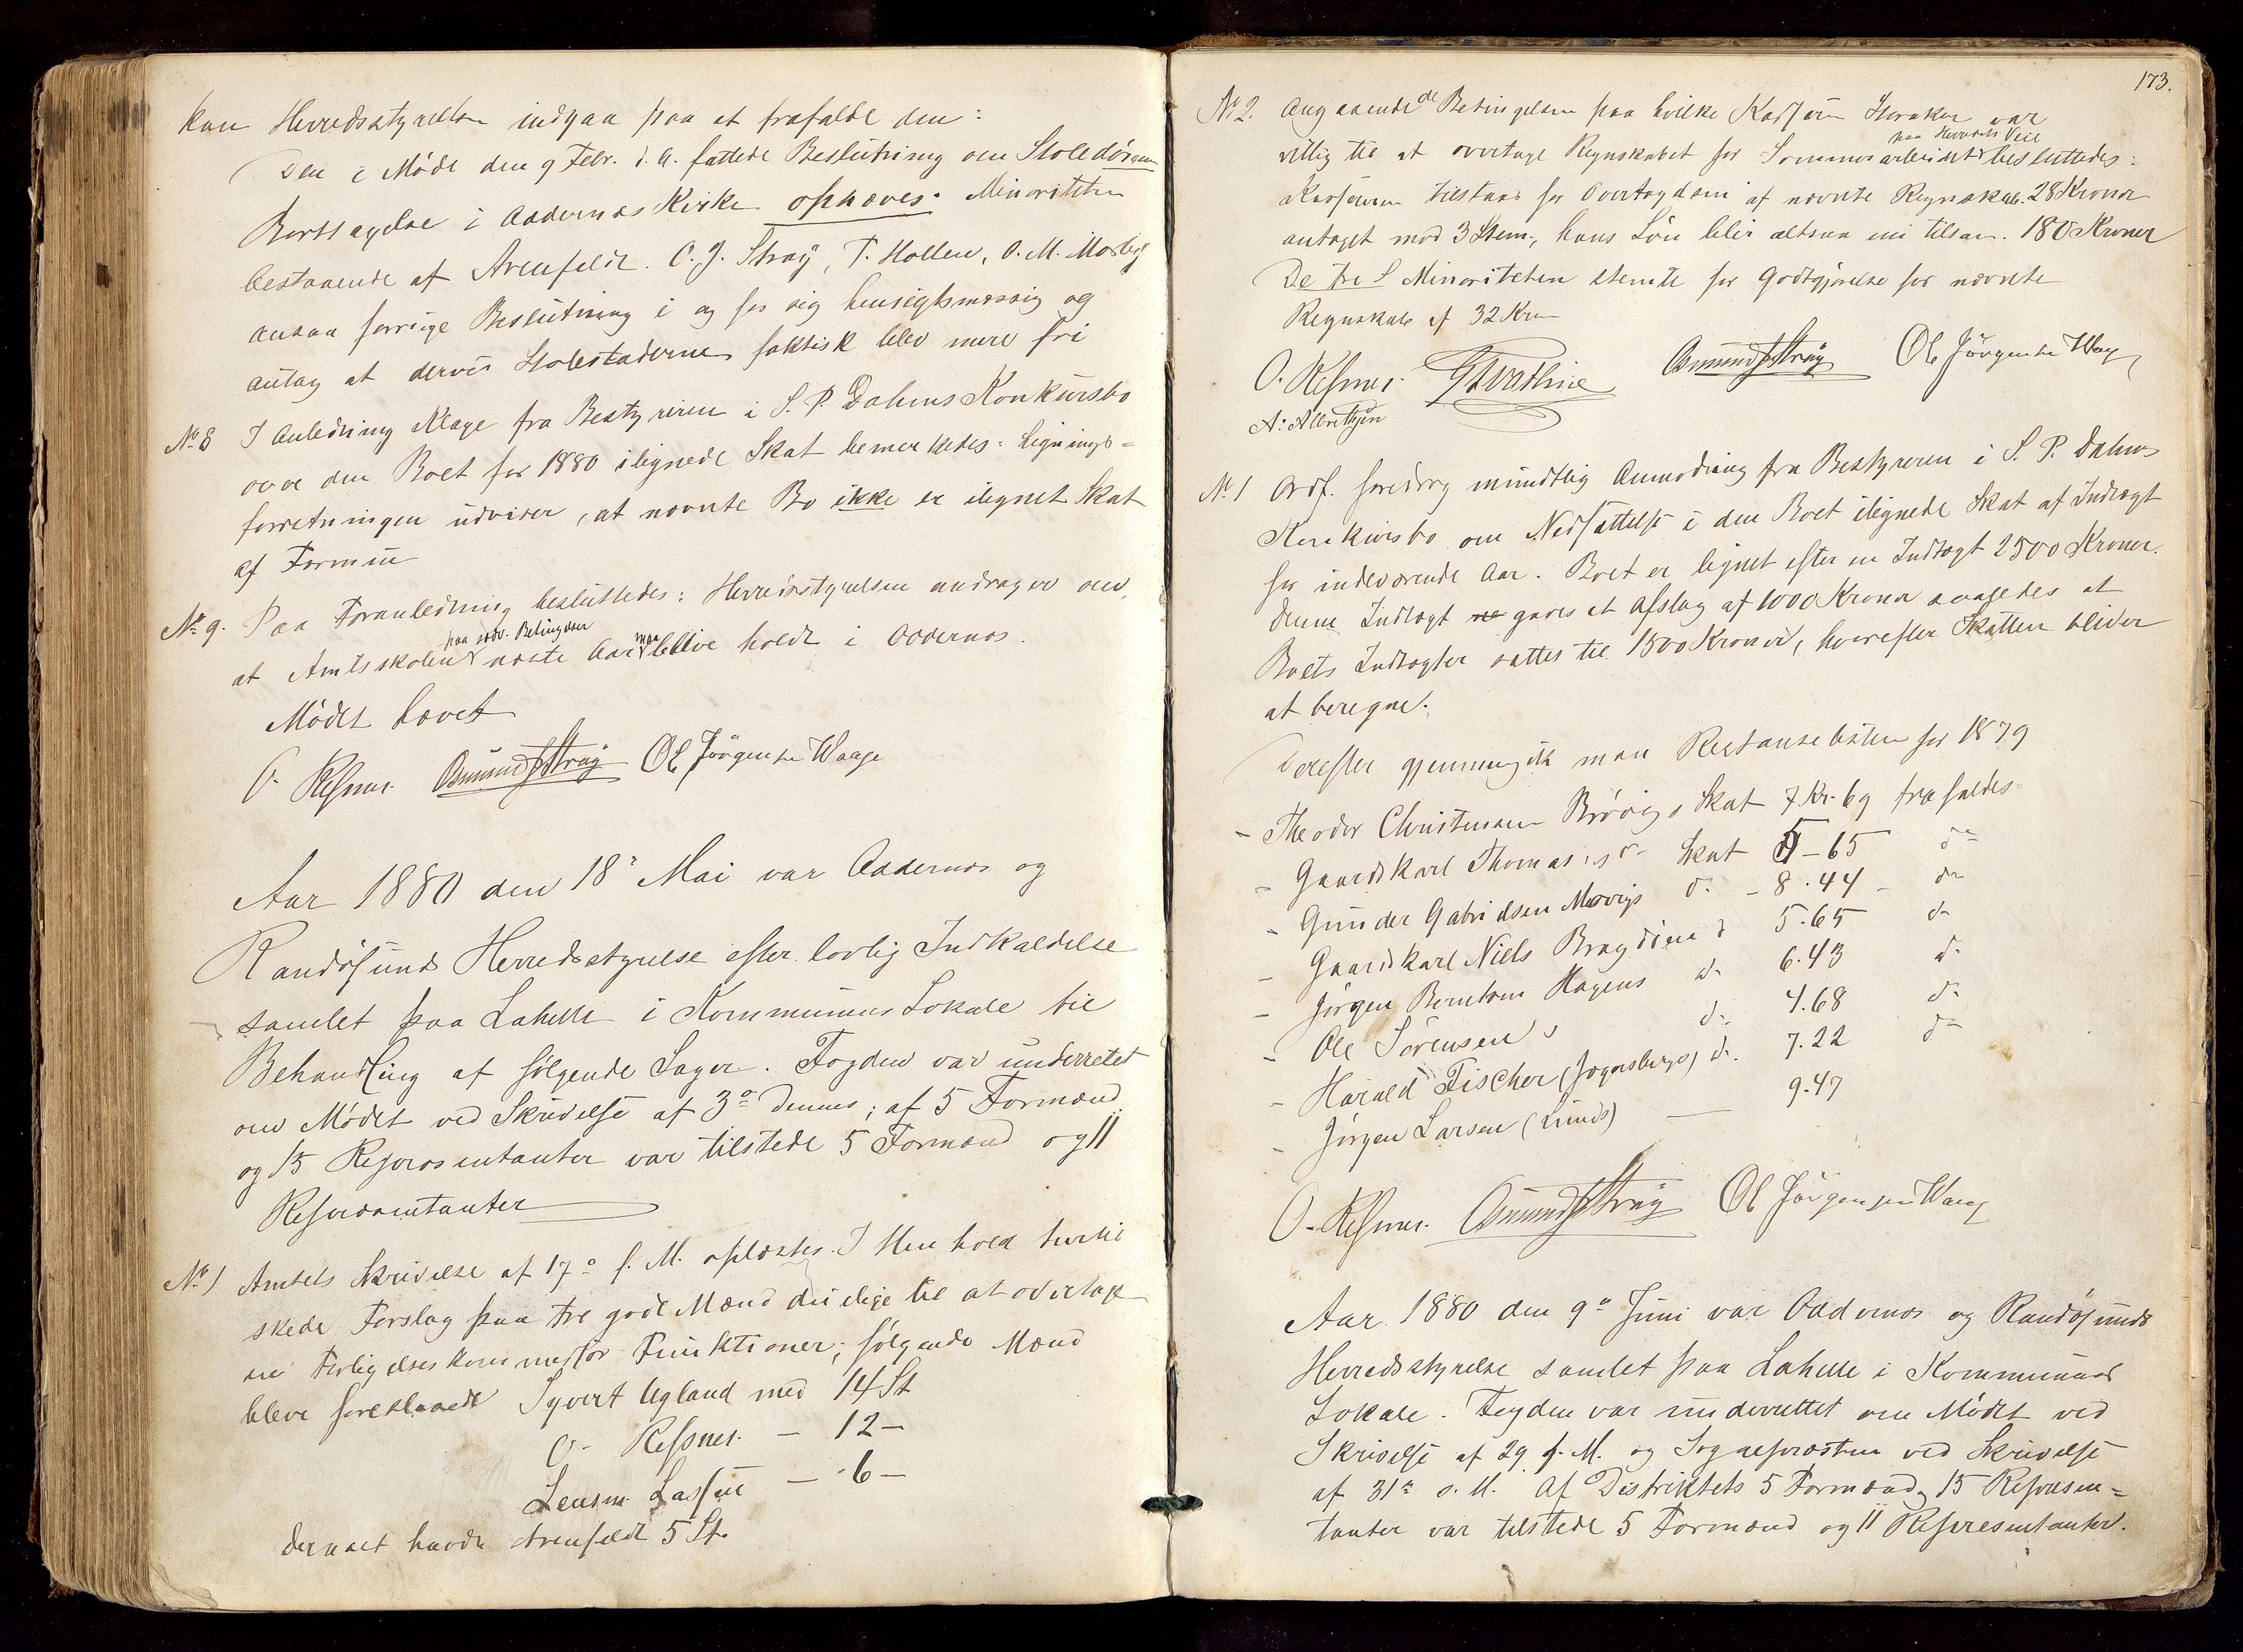 kan Herredsstyrelsen indgaa paa at frafalde den:
Den i Møde den 9 Febr. d. A. fattede Beslutning om Stoledørenes
Borttagelse i Oddernæs Kirke ophæves. Minoriteten
bestaaende af Arenfeldt. O. J. Straÿ, T. Hollen, O. M. Mosby
ansaa forrige Beslutning i og for sig hensigtsmæssig og
antog at derved Stolestaderne faktisk blev mere fri
No 8 I Anledning Klage fra Bestyreren i S. P. Dahms Konkursbo
over den Boet for 1880 ilignede Skat bemerkedes: Lignings=
forretningen udviser, at nævnte Bo ikke er ilignet Skat
af Formue
No 9. Paa Foranledning besluttedes: Herredsstyrelsen andrager om,
paa sedv. Betingelser maa
at Amtsskolen næste Aar blive holdt i Oddernæs.
Mødet hævet
O. Reßner. Osmund J Straÿ Ole Jörgensen Waage
Aar 1880 den 18de Mai var Oddernæs og
Randøsunds Herredsstyrelse efter lovlig Indkaldelse
samlet paa Lahelle i Kommunens Lokale til
Behandling af følgende Sager. Fogden var underrettet
om Mødet ved Skrivelse af 3de dennes; af 5 Formænd
og 15 Repræsentanter var tilstede 5 Formænd og 11
Repræsentanter
No 1 Amtets Skrivelse af 17de f. M. oplæstes. I Henhold hertil
skede Forslag paa tre gode Mænd duelige til at overtage
en Forligelseskommissærs Funktioner; følgende Mænd
bleve foreslaaede Syvert Ugland med 14 St
O. Reßner. — 12 —
Lensm. Lassen — 6 —
dernæst havde Arenfeldt 5 St.
173.
No 2. Angaaende de Betingelser paa hvilke Kasserer Horaker var
paa Herredets Veie
villig til at overtage Regnskabet for Sommerarbeidet besluttedes:
Kassereren tilstaaes for Overtagelsen af nævnte Regnskab. 28 Kroner
antaget mod 3 Stem., hans Løn blir altsaa nu tilsam. 180 Kroner
De tre i Minoriteten stemte for Godtgjørelse for nævnte
Regnskab af 32 Kr
O. Reßner. Osmund J Straÿ Ole Jörgensen Waage
A. Albrethsen
No 1 Ordf. foredrog mundtlig Anmodning fra Bestyreren i S. P. Dahms
Konkursbo om Nedsættelse i den Boet ilignede Skat af Indtægt
for indeværende Aar. Boet er lignet efter en Indtægt 2500 Kroner.
denne Indtægt gaves et Afslag af 1000 Kroner saaledes at
Boets Indtægter sattes til 1500 Kroner, hvorefter Skatten bliver
at beregne.
Derefter gjennemgik man Restanselisten for 1879
- Theodor Christensen Brøvigs Skat 7 Kr. 69 frafaldes
- Gaardskarl Thomas Skat 5 - 65 do
- Gunder Gabrielsen Mosvigs do - 8.44 - do
- Gaardskarl Niels Bragdøen do 5.65 do
- Jørgen Berntsen Hagens do 6.43 do
- Ole Sørensen's do 4.68 do
- Harald Fischer (Jægersbergs) do 7.22 do
- Jørgen Larsen (Lunds) — 9.47
O. Reßner. Osmund J Straÿ Ole Jörgensen Waage
Aar 1880 den 9de Juni var Oddernæs og Randøsunds
Herredsstyrelse samlet paa Lahelle i Kommunens
Lokale. Fogden var underrettet om Mødet ved
Skrivelse af 29 f. M. og Sognepræsten ved Skrivelse
af 31te s. M. Af Distriktets 5 Formænd, 15 Repræsen=
tanter var tilstede 5 Formænd og 11 Repræsentanter.